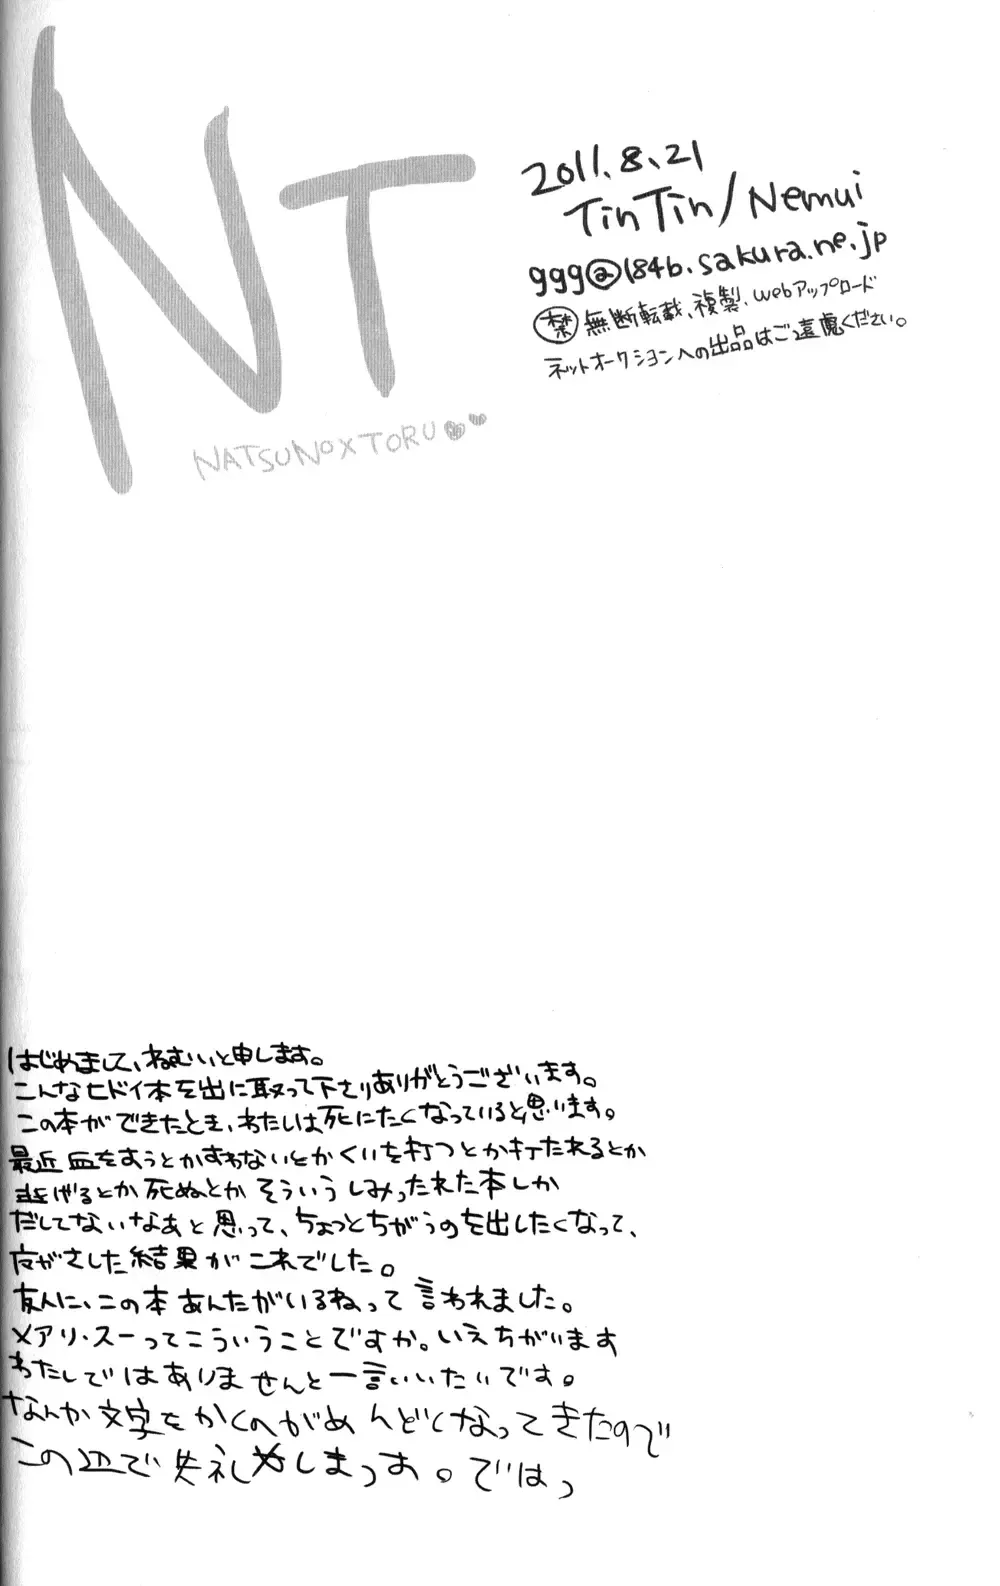 NT
NATSUNO×TORU
2011.8.21
TinTin/Nemui
ggg@184b.sakura.ne.jp
禁 無断転載、複製、webアップロード
ネットオークションへの出品はご遠慮ください。
はじめまして、ねむいと申します。
こんなヒドイ本をお手に取って下さりありがとうございます。
この本ができたとき、わたしは死にたくなっていると思います。
最近血をすうとかすわないとかくいを打つとか打たれるとか
逃げるとか死ぬとかそういうしみったれた本しか
だしてないなあと思って、ちょっとちがうのを出したくなって、
魔がさした結果がこれでした。
友人に、この本あんたがいるねって言われました。
メアリ・スーってこういうことですか。いえちがいます
わたしではありませんと一言いいたいです。
なんか文字をかくのがめんどくなってきたので
この辺で失礼しまっす。ではっ